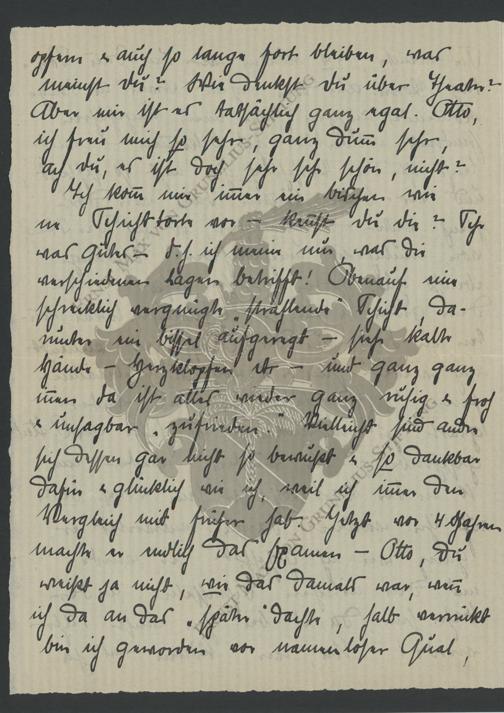 opfern & auch so lange fort bleiben, was
meinst du? Wie denkst du über Theater?
Aber mir ist es tatsächlich ganz egal. Otto,
ich freu mich so sehr, ganz dum̅ sehr,
ach du, es ist doch sehr sehr schön, nicht?
Ich kom̅ mir im̅er ein bischen wie
ne Schichttorte vor – kennst du die? Sehr
was Gutes – d. h. ich meine nur, was die
verschiedenen Lagen betrifft! Obenauf eine
schrecklich vergnügte „strahlende" Schicht, da-
runter ein bissel aufgeregt – siehe kalte
Hände – Herzklopfen etc – und ganz ganz
innen da ist alles wieder ganz ruhig & froh
& unsagbar „zufrieden." Vielleicht sind andre
sich dessen gar nicht so bewußt & so dankbar
dafür & glücklich wie ich, weil ich im̅er den
Vergleich mit früher hab. Jetzt vor 4 Jahren
machte er endlich das Examen – Otto, du
weißt ja nicht, wie das damals war, wen̅
ich da an das „später" dachte, halb verrückt
bin ich geworden vor namenloser Qual,